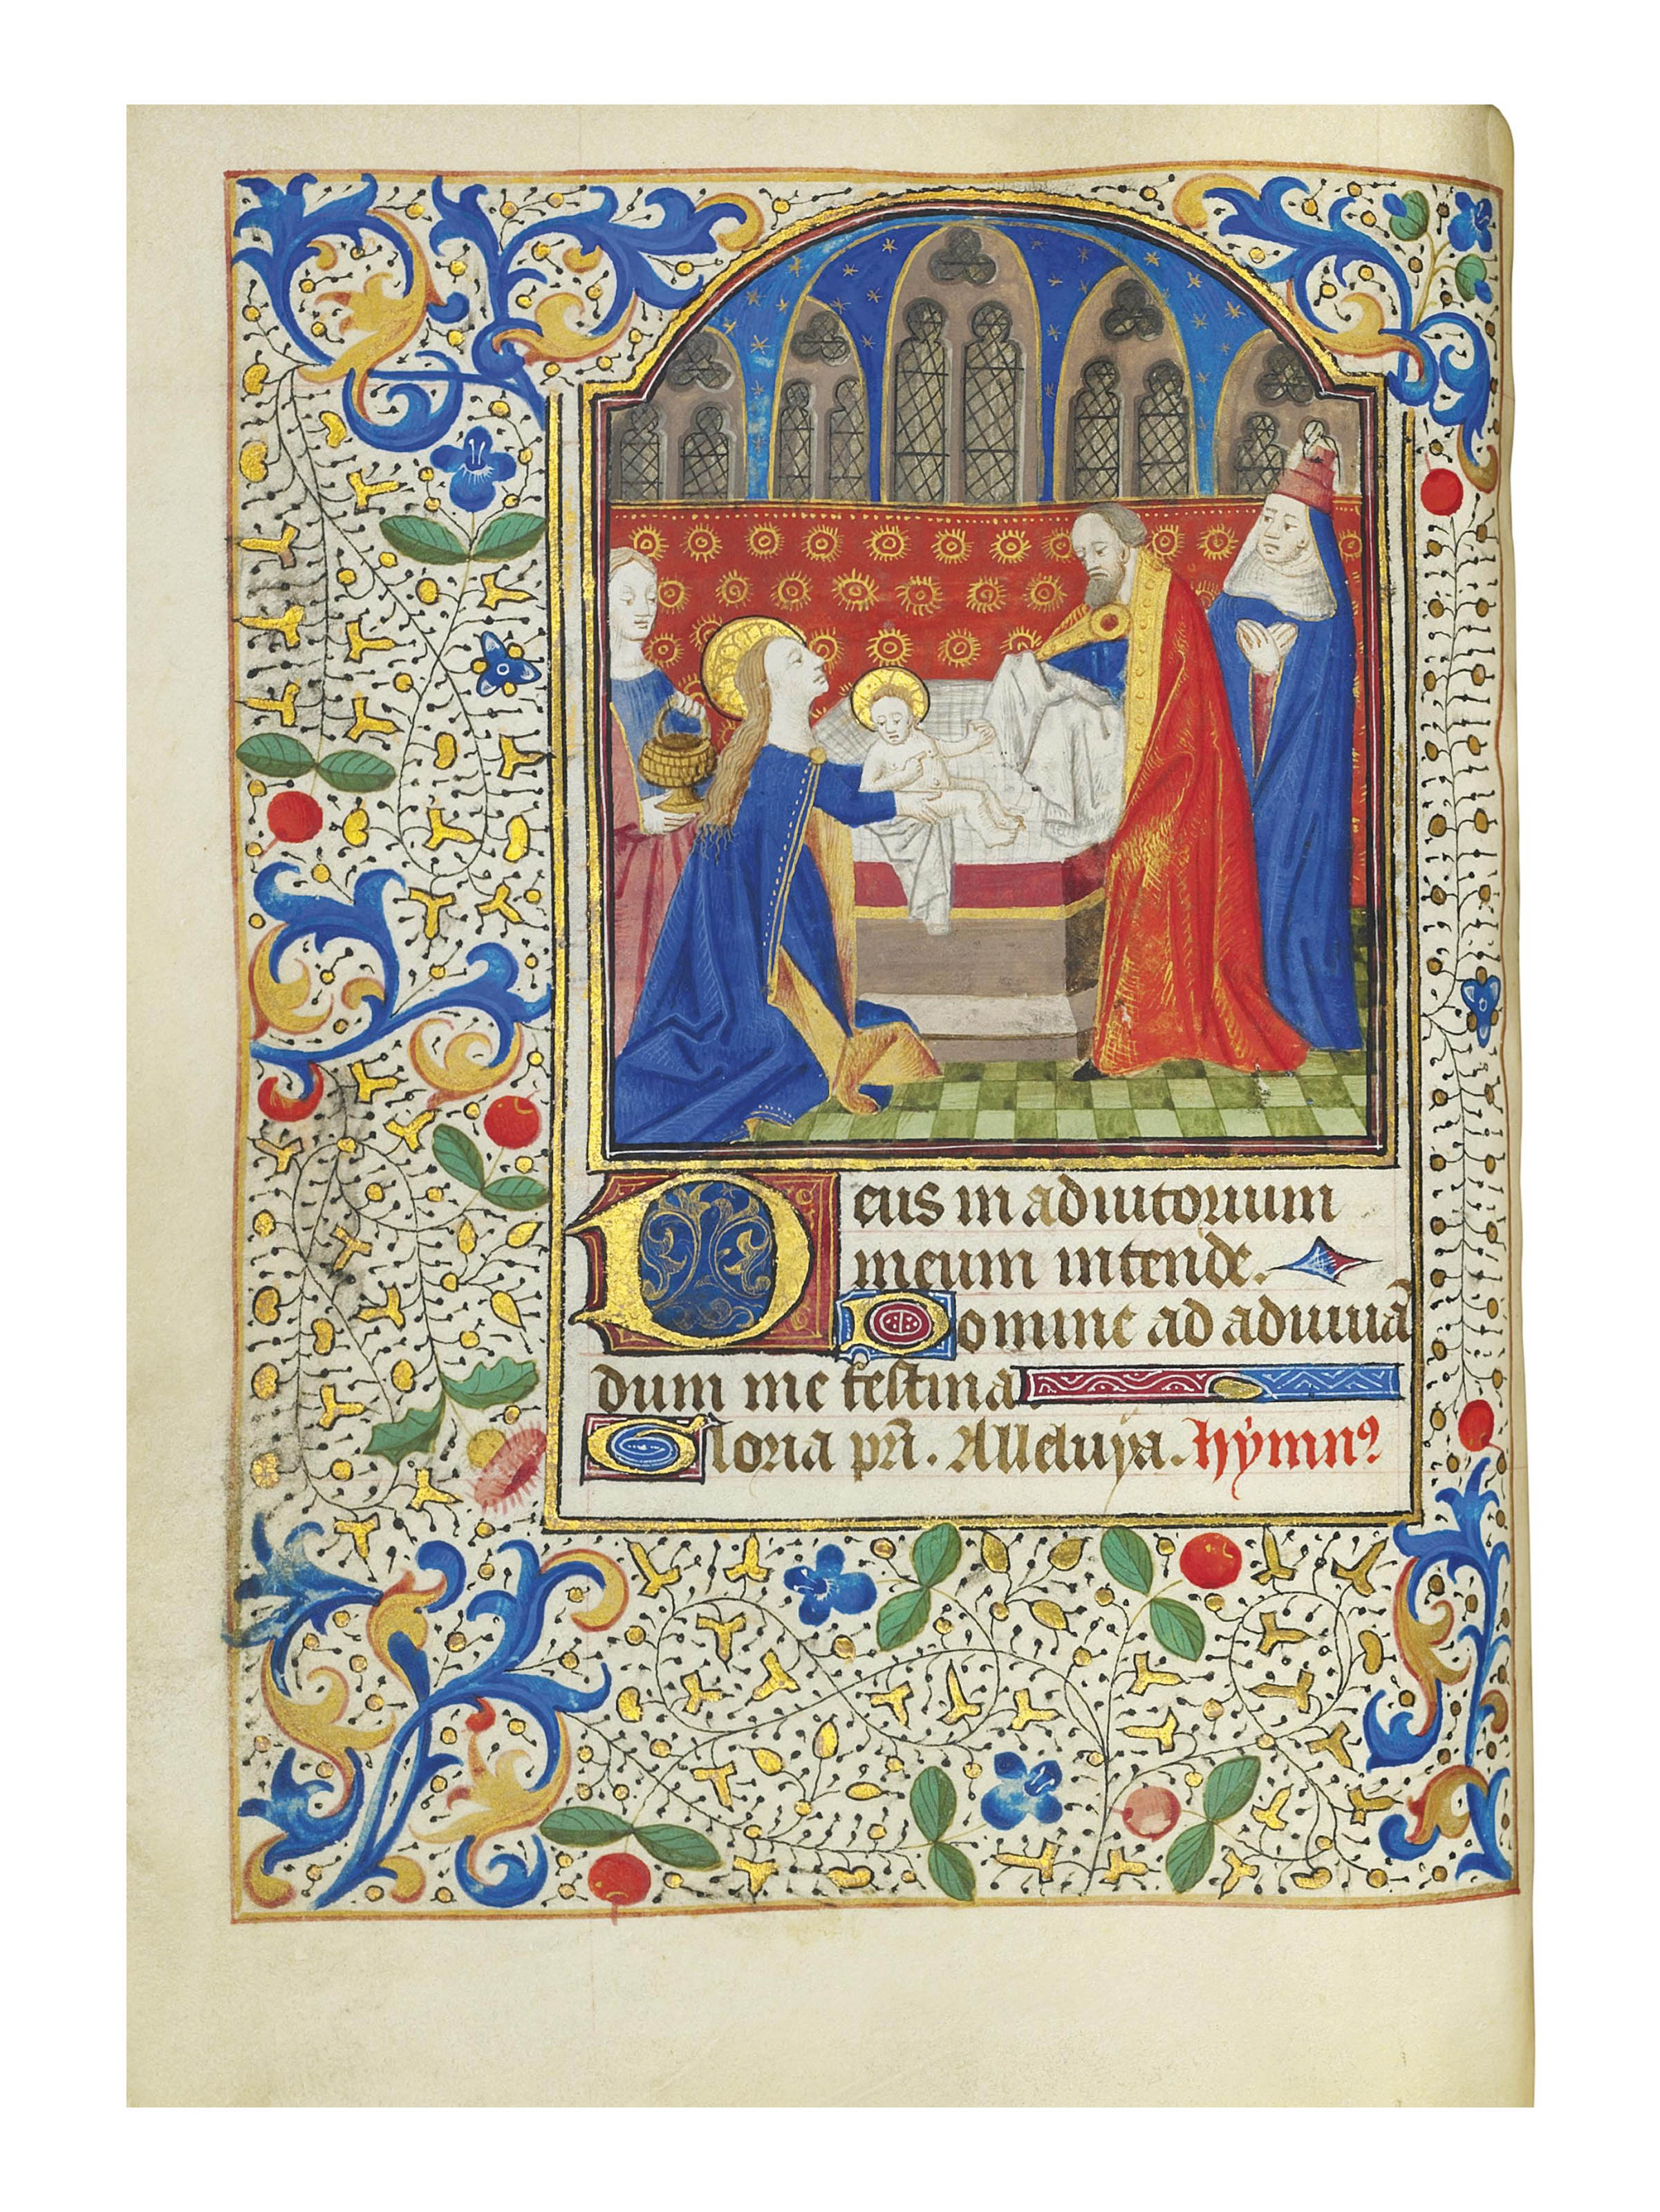 Deus in adiutorium
meum intende.
Domine ad adiuuā
dum me festina
Gloria pr̄i. Alleluya. hymnꝰ